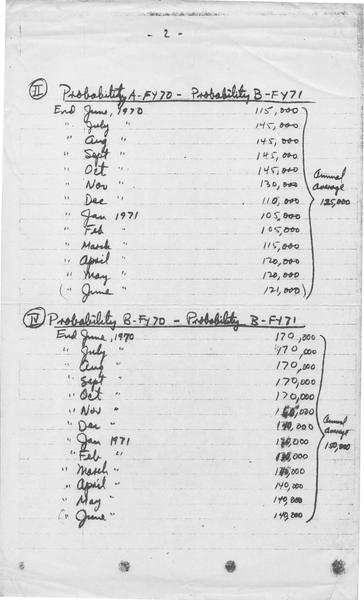 - 2 -
II Probability A-FY70 - Probability B-FY71
End June, 1970 115,000
" July " 145,000
" Aug " 145,000
" Sept " 145,000
" Oct " 145,000
" Nov " 130,000
" Dec " 110,000
" Jan 1971 105,000
" Feb " 105,000
" March " 115,000
" April " 120,000
" May " 120,000
(" June " 121,000)
Annual
average
125,000
IV Probability B-FY70 - Probability B-FY71
End June, 1970 170,000
" July " 170,000
" Aug " 170,000
" Sept " 170,000
" Oct " 170,000
" Nov "
" Dec "
" Jan 1971
" Feb "
" March "
" April " 140,000
" May " 140,000
(" June " 140,000
Annual
average
150,000